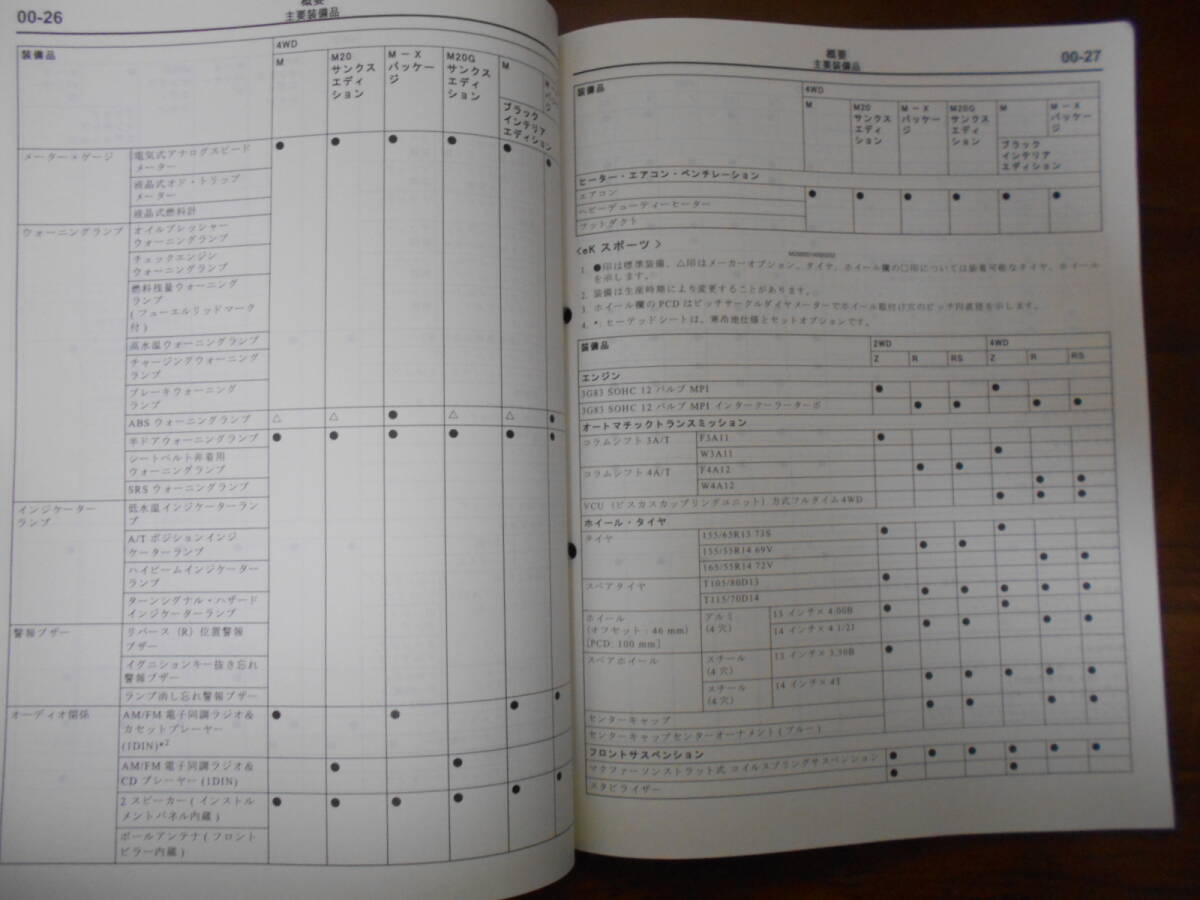 00-26
概要
主要装備品
装備品
4WD
M
M20
サンクス
エディ
ション
M－X
パッケー
ジ
M20G
サンクス
エディ
ション
M
ブラック
インテリア
エディション
メーター・ゲージ
電気式アナログスピード
メーター
液晶式オド・トリップ
メーター
液晶式燃料計
● ● ● ● ● ●
ウォーニングランプ
オイルプレッシャー
ウォーニングランプ
チェックエンジン
ウォーニングランプ
燃料残量ウォーニング
ランプ
(フューエルリッドマーク
付)
高水温ウォーニングランプ
チャージングウォーニング
ランプ
ブレーキウォーニング
ランプ
ABS ウォーニングランプ
△ △ ● △ △ ●
半ドアウォーニングランプ
● ● ● ● ● ●
シートベルト非着用
ウォーニングランプ
SRS ウォーニングランプ
インジケーター
ランプ
低水温インジケーターラン
プ
A/T ポジションインジ
ケーターランプ
ハイビームインジケーター
ランプ
ターンシグナル・ハザード
インジケーターランプ
警報ブザー
リバース (R) 位置警報
ブザー
イグニションキー抜き忘れ
警報ブザー
ランプ消し忘れ警報ブザー
オーディオ関係
AM/FM 電子同調ラジオ&
カセットプレーヤー
(1DIN)*2
● ● ● ●
AM/FM 電子同調ラジオ&
CD プレーヤー (1DIN)
● ●
2 スピーカー ( インストル
メントパネル内蔵 )
● ● ● ● ● ●
ポールアンテナ ( フロント
ピラー内蔵 )
概要
主要装備品
00-27
装備品
4WD
M
M20
サンクス
エディ
ション
M－X
パッケー
ジ
M20G
サンクス
エディ
ション
M
M－X
パッケー
ジ
ブラック
インテリア
エディション
ヒーター・エアコン・ベンチレーション
エアコン
● ● ● ● ● ●
ヘビーデューティーヒーター
フットダクト
<eK スポーツ>
1. ●印は標準装備、△印はメーカーオプション、タイヤ、ホイール欄の□印については装着可能なタイヤ、ホイール
を示します。
2. 装備は生産時期により変更することがあります。
3. ホイール欄の PCD はピッチサークルダイヤメーターでホイール取付け穴のピッチ円直径を示します。
4. *: ヒーテッドシートは、寒冷地仕様とセットオプションです。
装備品
2WD
4WD
Z R RS Z R RS
エンジン
3G83 SOHC 12 バルブ MPI
● ●
3G83 SOHC 12 バルブ MPI インタークーラーターボ
● ● ● ●
オートマチックトランスミッション
コラムシフト 3A/T
F3A11
●
W3A11
●
コラムシフト 4A/T
F4A12
● ●
W4A12
● ●
VCU (ビスカスカップリングユニット) 方式フルタイム 4WD
● ● ●
ホイール・タイヤ
タイヤ
155/65R13 73S
● ●
155/55R14 69V
● ●
165/55R14 72V
● ●
スペアタイヤ
T105/80D13
●
T115/70D14
● ● ● ● ●
ホイール
(オフセット : 46 mm)
[PCD: 100 mm]
アルミ
(4 穴)
13 インチ× 4.00B
● ●
14 インチ× 4 1/2J
● ● ● ●
スペアホイール
スチール
(4 穴)
13 インチ× 3.50B
●
スチール
(4 穴)
14 インチ× 4T
● ● ● ● ●
センターキャップ
● ● ● ●
センターキャップセンターオーナメント ( ブルー )
フロントサスペンション
マクファーソンストラット式 コイルスプリングサスペンション
● ● ● ● ● ●
スタビライザー
● ●